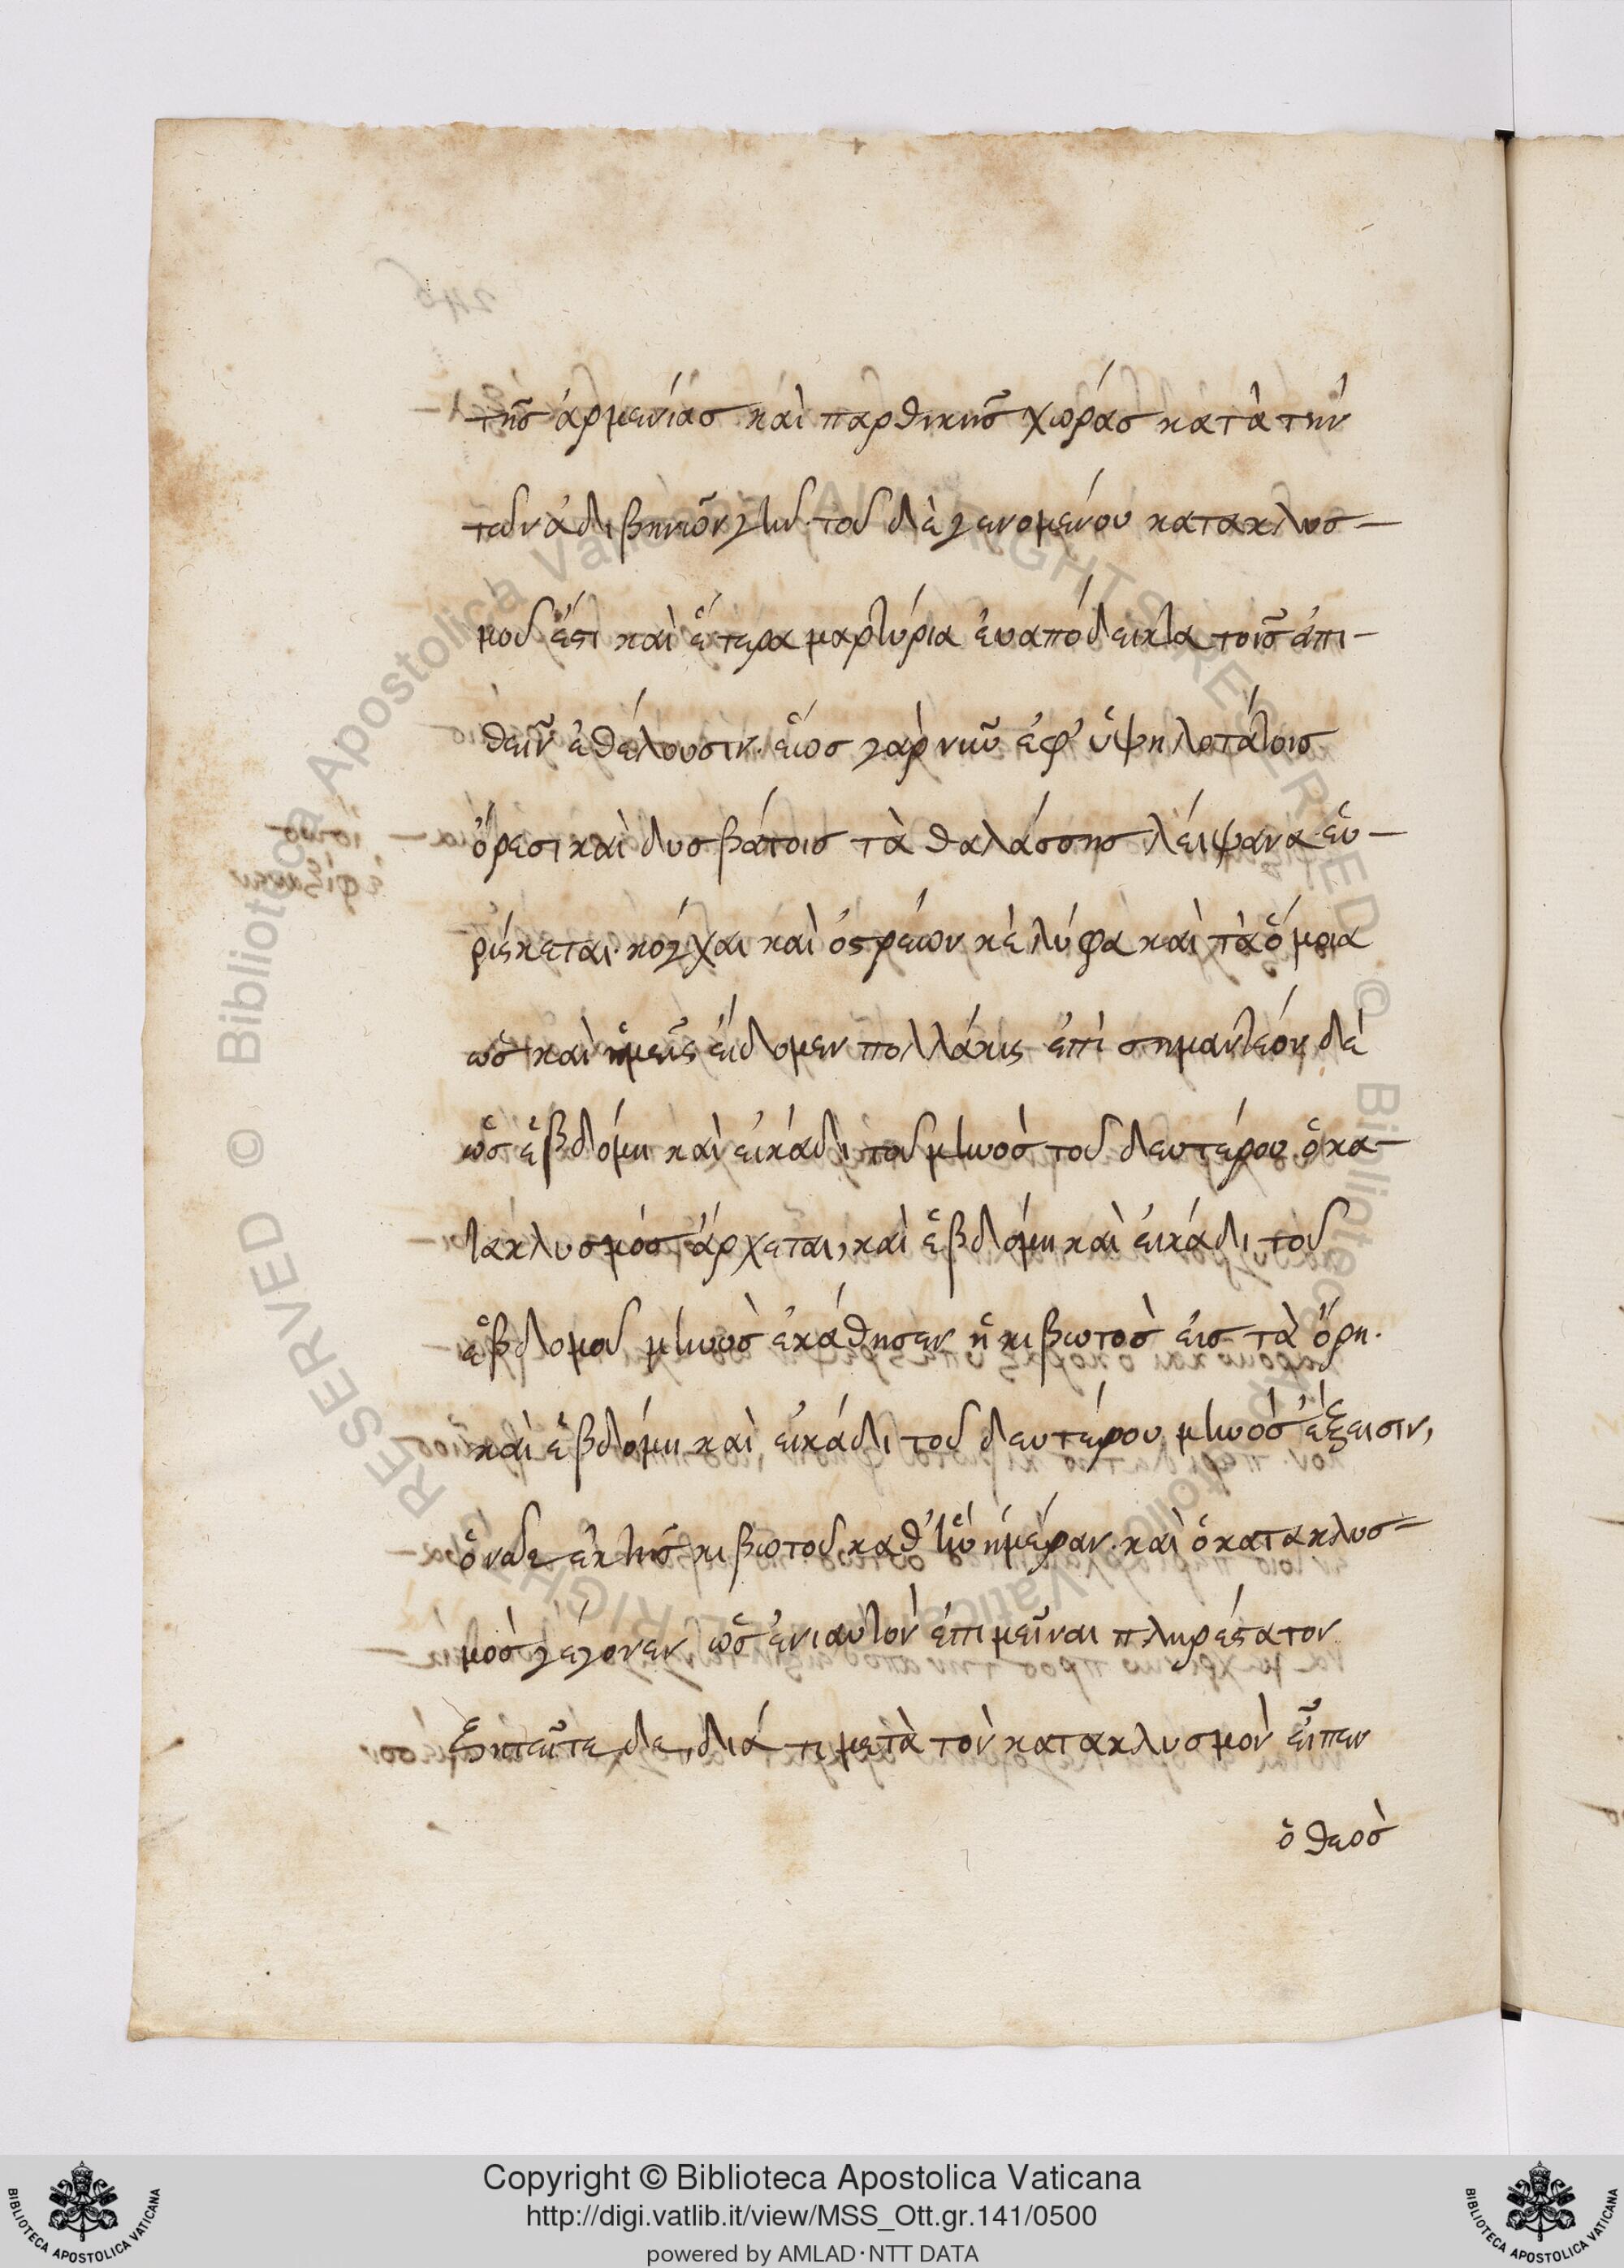 τῆς ἀρμενίας καὶ παρθικῆς χώρας κατὰ τὴν
τῶν ἀδιβηνῶν γῆν. τοῦ δὲ γενομένου κατακλυσ-
μοῦ ἔστι καὶ ἕτερα μαρτύρια ἐυαπόδεικτα τοῖς ἀπι-
θεῖν ἐθέλουσιν. ἕως γὰρ νῦν ἐφ' ὑψηλοτάτοις
ὄρεσι καὶ δυσβάτοις τὰ θαλάσσης λείψανα εὑ-
ρίσκεται. κόγχαι καὶ ὀστρέων κελύφα καὶ τὰ ὅμοια
ὡς καὶ ἡμεῖς εἴδομεν πολλάκις ἐπισημαντέον δὲ
ὡς ἑβδόμη καὶ εἰκάδι τοῦ μηνὸς τοῦ δευτέρου ὁ κα-
τακλυσμὸς ἄρχεται, καὶ ἑβδόμη καὶ εἰκάδι τοῦ
ἑβδόμου μηνὸς ἐκάθησεν ἡ κιβωτὸς εἰς τὰ ὄρη.
καὶ ἑβδόμη καὶ εἰκάδι τοῦ δευτέρου μηνὸς ἔξεισιν,
ὁ νῶε ἐκ τῆς κιβωτοῦ καθ' ἣν ἡμέραν. καὶ ὁ κατακλυσ-
μὸς γέγονεν ὡς ἐνιαυτὸν ἐπιμεῖναι πληρέστατον
ζητεῖτε δε, διά τι μετὰ τὸν κατακλυσμὸν εἶπεν
ὁ θεὸς
Copyright © Biblioteca Apostolica Vaticana
http://digi.vatlib.it/view/MSS_Ott.gr.141/0500
powered by AMLAD·NTT DATA
BIBLIOTECA APOSTOLICA VATICANA
BIBLIOTECA APOSTOLICA VATICANA